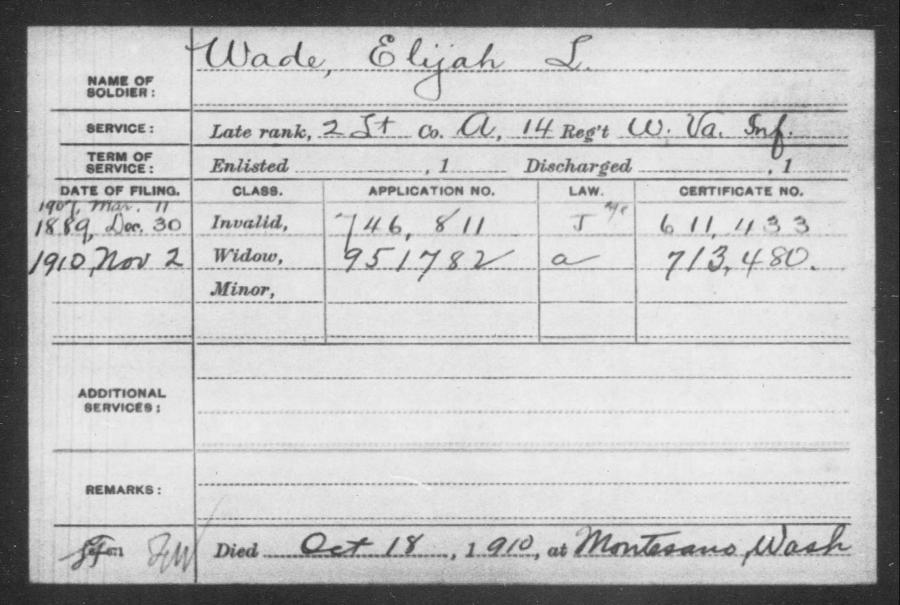 Wade, Elijah L.
NAME OF SOLDIER:
SERVICE: Late rank, 2 Lt Co. A, 14 Reg't W. Va. Inf.
TERM OF SERVICE: Enlisted , 1 Discharged , 1
DATE OF FILING. CLASS. APPLICATION NO. LAW. CERTIFICATE NO.
1907, Mar. 11
1889, Dec. 30 Invalid, 746,811 J 611,433
1910, Nov 2 Widow, 951782 a 713,480.
Minor,
ADDITIONAL SERVICES:
REMARKS:
Died Oct 18, 1910, at Montesano, Wash